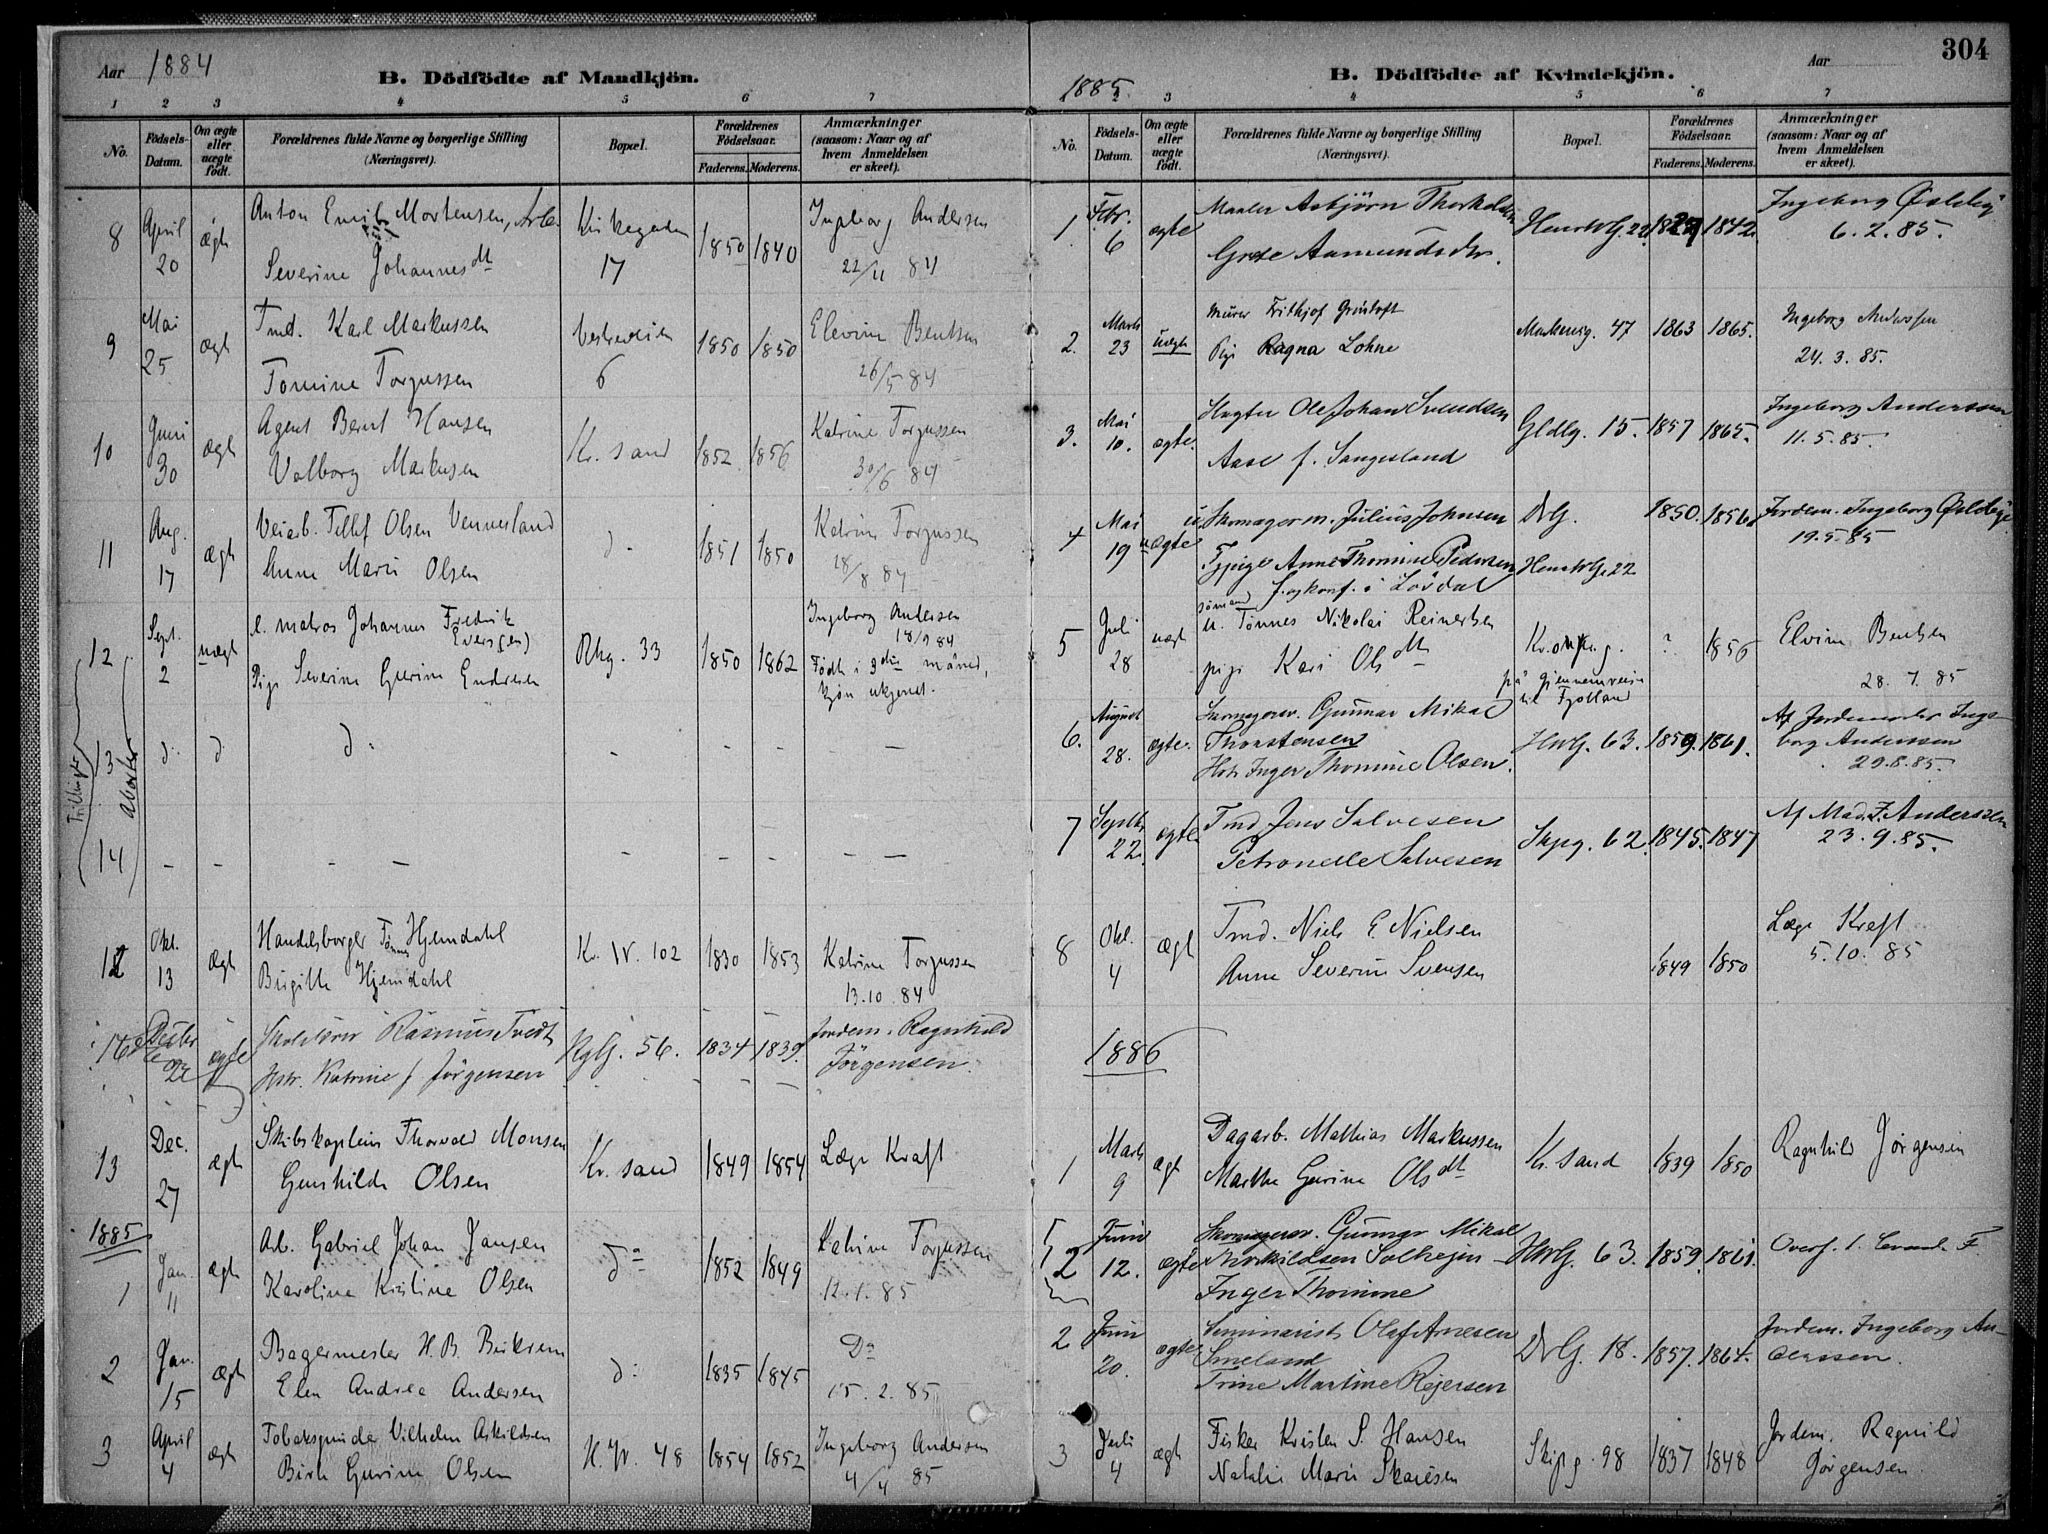 Aar 1884
B. Dödfödte af Mandkjön.
1 2 3 4 5 6 7
No.
Födsels-Datum.
Om ægte eller uægte födt.
Forældrenes fulde Navne og borgerlige Stilling (Næringsvei).
Bopæl.
Forældrenes Födselsaar.
Faderens. Moderens.
Anmærkninger (saasom: Naar og af hvem Anmeldelsen er skeet).
8 April 20 ægt Anton Emil Mortensen, Arb.
Severine Johannesdt
Kirkegaden 17 1850 1840 Ingeborg Andersen
9 Mai 25 ægt Tmd. Karl Markussen
Tomine Torgussen
6 1850 1850 Elevine Bentsen
26/5 84
10 Juni 30 ægt Agent Bernt Hansen
Valborg Markusen
Kr. sand 1852 1856 Katrine Torgussen
30/6 84
11 Aug. 17 ægt Veiarb. Tellef Olsen Vennesland
Anne Marie Olsen
d. 1851 1850 Katrine Torgussen
18/8 84
Trillinger
Aborter
12 Sept. 2 uægt e. matros Johannes Fredrik Eversen)
Pige Severine Gurine Endresen
Rhg. 33 1850 1862 Ingeborg Andersen
18/9 84
Födt i 3die måned, kjön ukjendt.
13 d. d. d. - - - -
14 - - - - - - -
12 Okt. 13 ægt Handelsborger Tönnes Hjemdahl
Birgitte Hjemdahl
Kr. W. 102 1830 1853 Katrine Torgussen
13.10.84
16 Decbr 22 ægte Rasmus Tvedt
Hstr. Katrine f Jörgensen
56. 1834 1839. Jordem. Ragnhild
Jörgensen.
13 Dec. 27 ægt Skibskaptein Thorvald Monsen
Gunhilde Olsen
Kr. sand 1849 1854 Læge Kraft
1885
1 Jan. 11 ægt Arb. Gabriel Johan Jansen
Karoline Kristine Olsen
do 1852 1849 Katrine Torgussen
12.1.85
2 Jan. 15 ægt Bagermester H. B. Birkrem
Elen Andrea Andersen
d: 1835 1845 Do
15.2.85
3 April 4 ægt Tobakspinder Vilhelm Askildsen
Birte Gurine Olsen
H. W. 48 1854 1852 Ingeborg Andersen
4/4 85
304
Aar
1885
B. Dödfödte af Kvindekjön.
2 3 4 5 6 7
No.
Födsels-Datum.
Om ægte eller uægte födt.
Forældrenes fulde Navne og borgerlige Stilling (Næringsvei).
Bopæl.
Forældrenes Födselsaar.
Faderens. Moderens.
Anmærkninger (saasom: Naar og af hvem Anmeldelsen er skeet).
1. Febr. 6 ægte Maaler Asbjörn Thorkildsen
Grete Aamundsdtr.
1842. Ingeborg Öslebye
6.2.85.
2. Marts 23 uægte Murer Frithjof Grüntoft
Pige Ragna Lohne
Markensg. 47 1863 1865. Ingeborg Anderssen
24.3.85.
3. Mai 10. ægte. Slagter Ole Johan Svendsen
Aase f. Sangesland
Gldlg. 15. 1857 1865. Ingeborg Anderssen
11.5.85.
4 Mai 19 uægte u. Skomager m. Julius Johnsen
Tjpige Anne Thomine Pedersen
f. og konf. i Lövdal
DrG.
1850. 1856. Jordem. Ingeborg Öslebye
19.5.85
5 Juli 28 uægt sömand
u. Tönnes Nikolai Reinertsen
pige Kari Olsdt
på gjennemreise
til Fjotland
? 1856 Elvine Bentsen
28.7.85
6. August 28. ægte. Skomagersv. Gunnar Mikal
Thorstensen
Hstr Inger Thomine Olsen.
63. 1859. 1861. Af Jordemoder Inge-
borg Anderssen
29.8.85.
7 Septbr 22. ægte Tmd Jens Salvesen
Petronelle Salvesen
Skpg. 62. 1845. 1847 Af Mad. I. Anderssen
23.9.85.
8 Okt. 4 ægt Tmd. Niels E. Nielsen
Anne Severine Svensen
1849 1850 Læge Kraft
5.10.85
1886
1 Marts 9 ægt Dagarb. Mathias Markussen
Marthe Gurine Olsdt
Kr. sand 1839 1850 Ragnhild Jörgensen
2 Juni 12. ægte Skomagersv. Gunnar Mikal
Inger Thomine
63. 1859. 1861.
2 Juni 20. ægte Seminarist Olaf Arnesen
Smeland
Trine Martine Rejersen
DrG. 18. 1857. 1864. Jordem. Ingeborg An-
derssen.
3 Juli 4 ægt Fisker Kristen S. Hansen
Natalie Marie Skaiesen
Skipg. 98 1837 1848 Jordem. Ragnild
Jörgensen